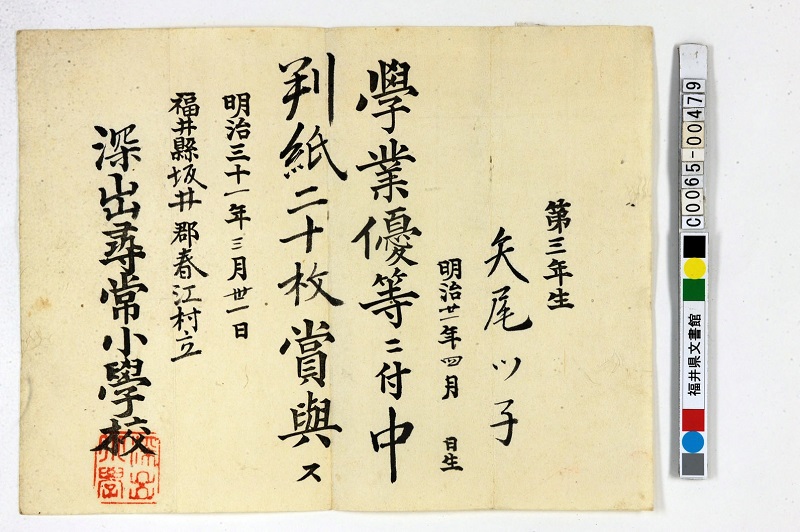 第三年生
矢尾ツ子
明治廿一年四月 日生
學業優等ニ付中
判紙二十枚賞與ス
明治三十一年三月卅一日
福井縣坂井郡春江村立
深出尋常小學校
C0065-00479
福井県文書館